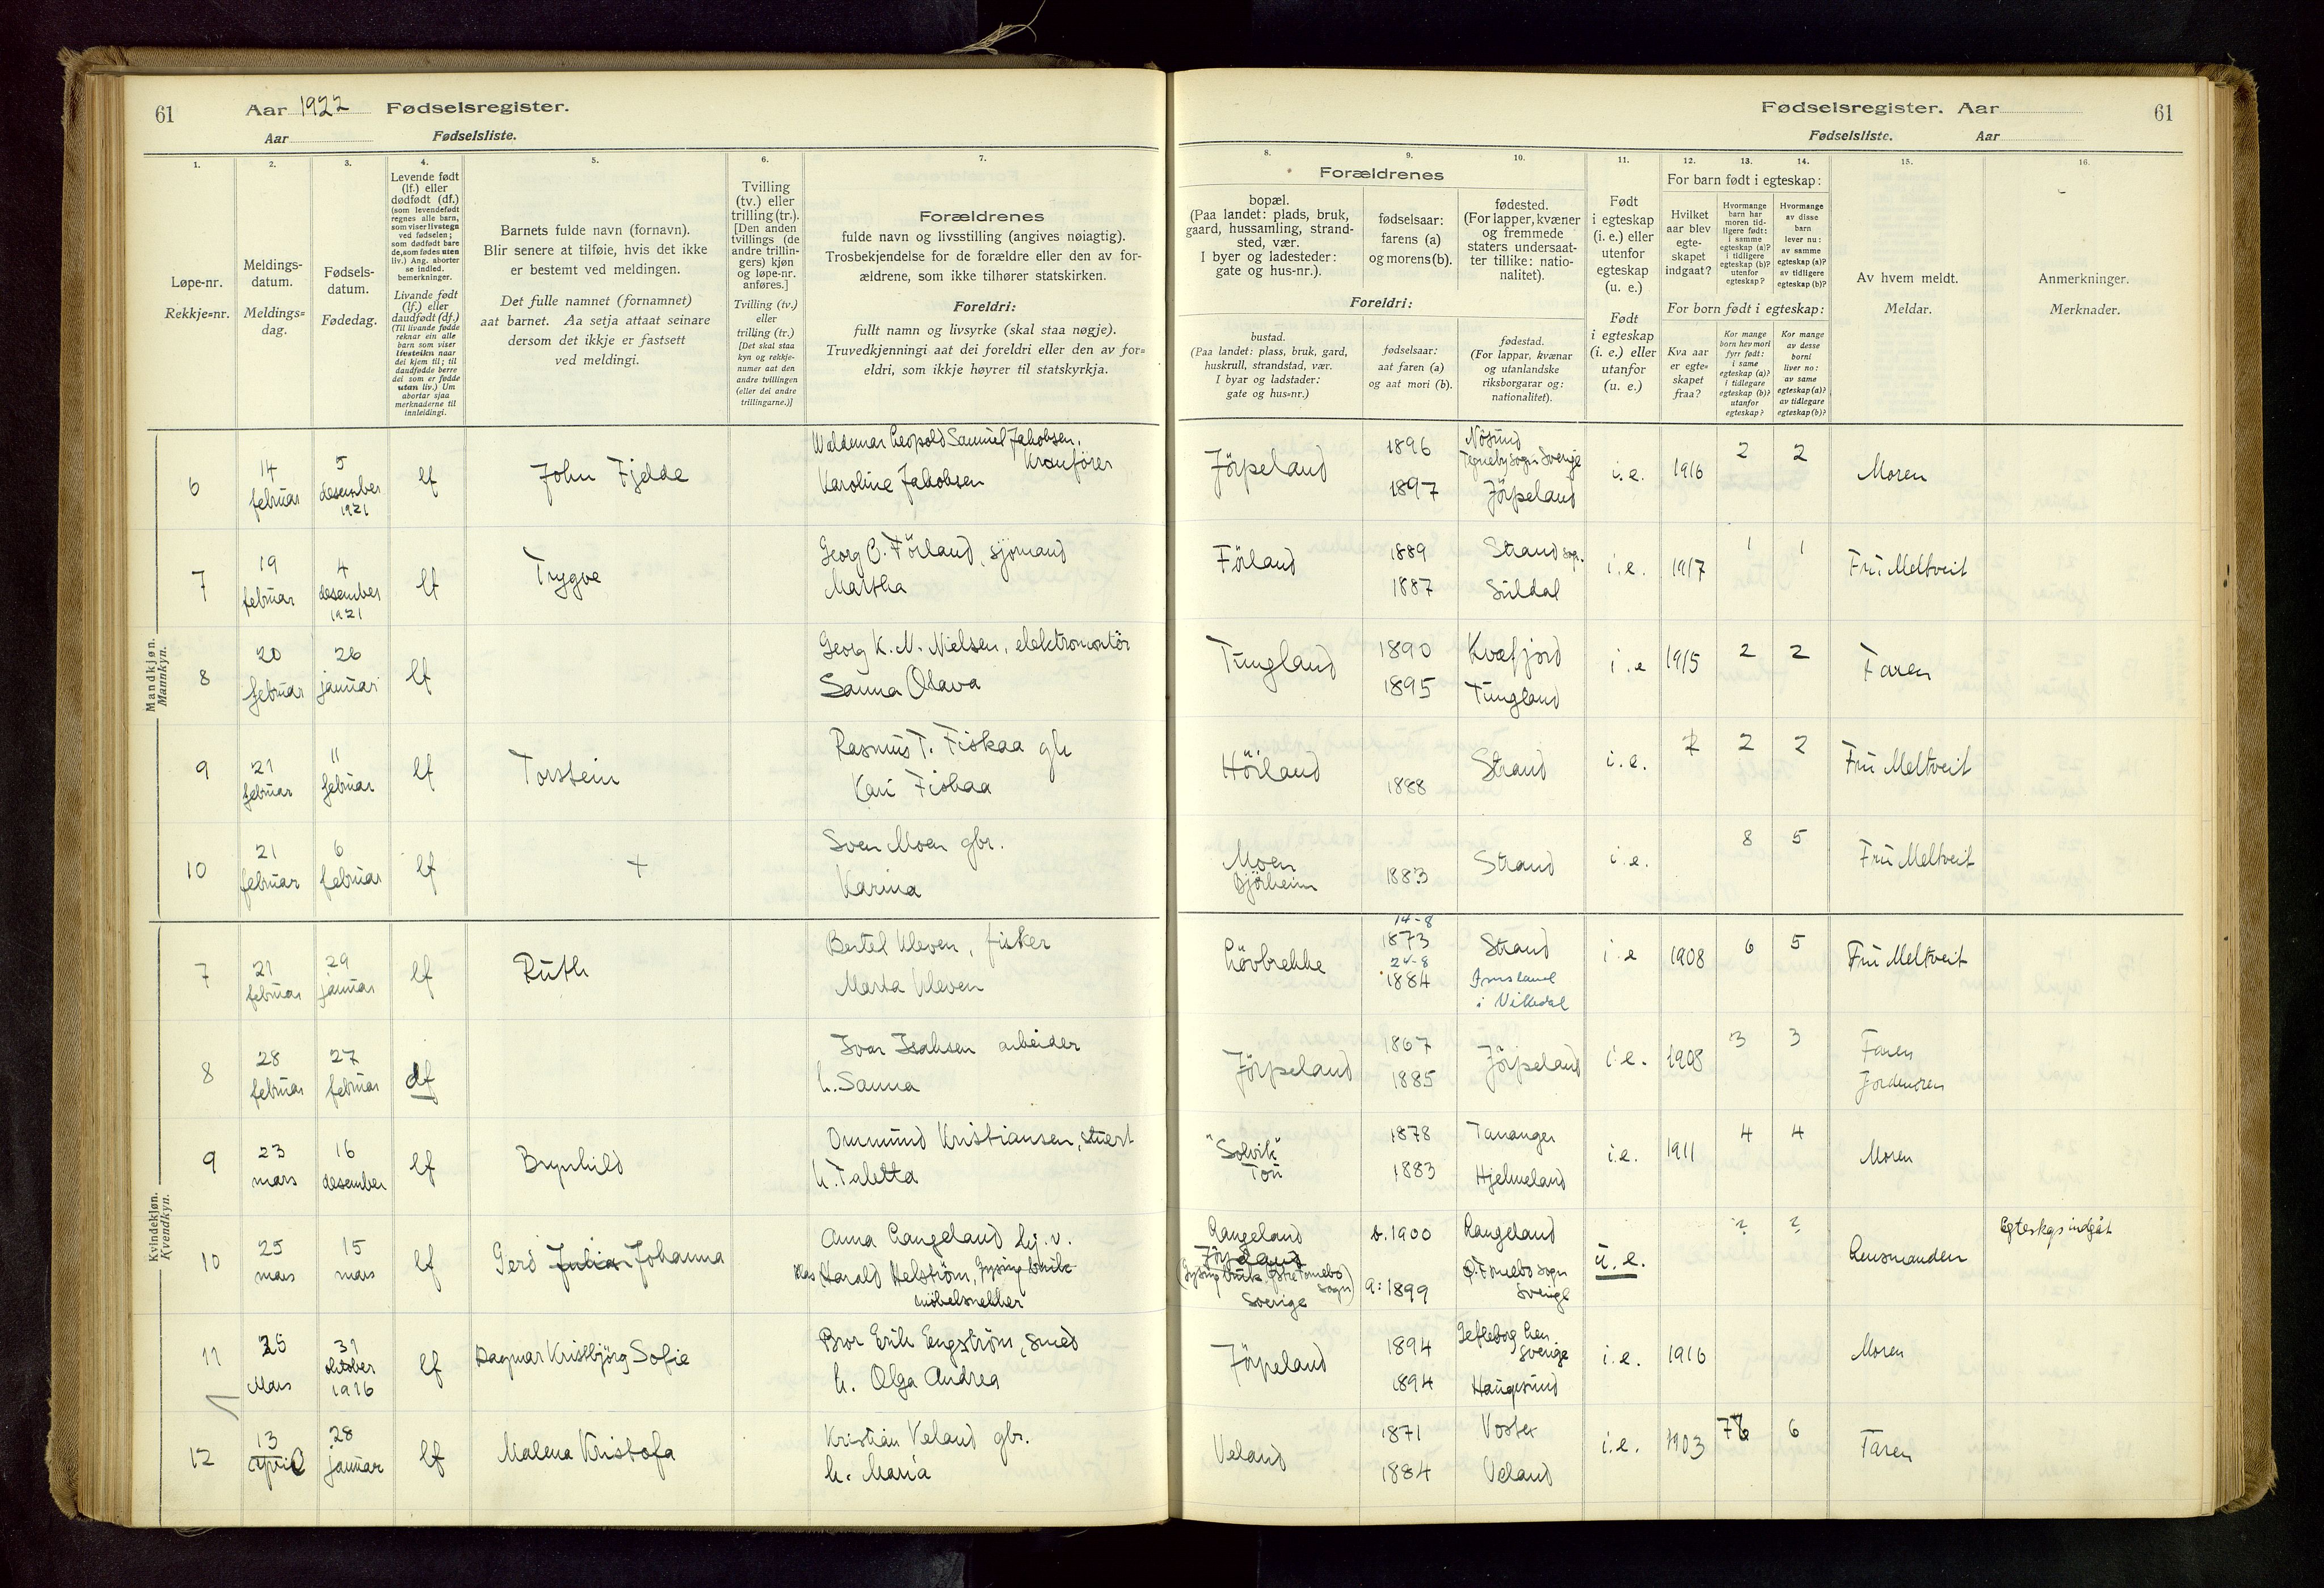 61
Aar 1922 Fødselsregister.
Aar Fødselsliste.
Fødselsregister. Aar
61
Fødselsliste. Aar
1.
Løpe-nr.
Rekkje-nr.
2.
Meldings-
datum.
Meldings-
dag.
3.
Fødsels-
datum.
Fødedag.
4.
Levende født
(lf.) eller
dødfødt (df.)
(som levendefødt
regnes alle barn,
som viser livstegn
ved fødselen;
som dødfødt bare
de, som fødes uten
liv.) Ang. aborter
se indled.
bemerkninger.
Livande født
(lf.) eller
daudfødt (df.)
(Til livande fødde
reknar ein alle
barn som viser
livsteikn naar
dei kjem til; til
daudfødde berre
dei som er fødde
utan liv.) Um
abortar sjaa
merknaderne til
innleidingi.
5.
Barnets fulde navn (fornavn).
Blir senere at tilføie, hvis det ikke
er bestemt ved meldingen.
Det fulle namnet (fornamnet)
aat barnet. Aa setja attaat seinare
dersom det ikkje er fastsett
ved meldingi.
6.
Tvilling
(tv.) eller
trilling (tr.).
[Den anden
tvillings (de
andre trillin-
gers) kjøn
og løpe-nr.
anføres.]
Tvilling (tv.)
eller
trilling (tr.)
[Det skal staa
kyn og rekkje-
numer aat den
andre tvillingen
(eller dei andre
trillingarne.)]
7.
Forældrenes
fulde navn og livsstilling (angives nøiagtig).
Trosbekjendelse for de forældre eller den av for-
ældrene, som ikke tilhører statskirken.
Foreldri:
fullt namn og livsyrke (skal staa nøgje).
Truvedkjenningi aat dei foreldri eller den av for-
eldri, som ikkje høyrer til statskyrkja.
Forældrenes
8.
bopæl.
(Paa landet: plads, bruk,
gaard, hussamling, strand-
sted, vær.
I byer og ladesteder:
gate og hus-nr.).
9.
fødselsaar:
farens (a)
og morens (b).
10.
fødested.
(For lapper, kvæner
og fremmede
staters undersaat-
ter tillike: natio-
nalitet).
Foreldri:
bustad.
(Paa landet: plass, bruk, gard,
huskrull, strandstad, vær.
I byar og ladstader:
gate og hus-nr.)
fødselsaar:
aat faren (a)
og aat mori (b).
fødestad.
(For lappar, kvænar
og utanlandske
riksborgarar og:
nationalitet).
11.
Født
i egteskap
(i. e.) eller
utenfor
egteskap
(u. e.)
Født
i egteskap
(i. e.) eller
utanfor
(u. e.)
For barn født i egteskap:
12.
Hvilket
aar blev
egte-
skapet
indgaat?
13.
Hvormange
barn har
moren tid-
ligere født:
i samme
egteskap (a)?
i tidligere
egteskap (b)?
utenfor
egteskap?
14.
Hvormange
av disse
barn
lever nu:
av samme
egteskap (a)?
av tidligere
egteskap (b)?
For born født i egteskap:
Kva aar
er egte-
skapet
fraa?
Kor mange
born hev mori
fyrr født:
i same
egteskap (a)?
i tidlegare
egteskap (b)?
utanfor
egteskap?
Kor mange
av desse
borni
liver no:
av same
egteskap (a)?
av tidlegare
egteskap (b)?
15.
Av hvem meldt.
Meldar.
16.
Anmerkninger.
Merknader.
Mandkjøn.
Mannkyn.
6
14 februar
5 desember 1921
lf
John Fjelde
Waldemar Leopold Samuel Jakobsen.
Kranfører
Karoline Jakobsen
Jörpeland
1896
1897
Nösund
Tegneby sogn Sverige
Jörpeland
i.e. 1916 2 2 Moren
7
19 februar
4 desember 1921
lf
Trygve
Georg C. Förland, sjömand
Martha
Förland
1889
1887
Strand sogn.
Suldal
i.e. 1917 1 1 Fru Meltveit
8
20 februar
26 januar
lf
Georg K. N. Nielsen, elektromontör
Sanna Olava
Tungland
1890
1895
Kvæfjord
Tungland
i.e 1915 2 2 Faren
9
21 februar
11 februar
lf
Torstein
Rasmus T. Fiskaa gb
Kari Fiskaa
Hörland
1888
Strand
i.e. ? 2 2 Fru Meltveit
10
21 februar
6 februar
lf
+
Sven Moen gbr.
Karina
Moen
Bjørheim
1883
Strand
i.e. 8 5 Fru Meltveit
Kvindekjøn.
Kvendkyn.
7
21 februar
29 januar
lf
Ruth
Bertel Kleven, fisker
Marta Kleven
Lövbrekke
14-8
1873
24-8
1884
Strand
Imsland
i Vikedal
i.e 1908 6 5 Fru Meltveit
8
28 februar
27 februar
df
Ivar Isaksen arbeider
h. Sanna
Jörpeland
1867
1885
Jörpeland
i.e. 1908 3 3 Faren
Jordmoren
9
23 mars
16 desember
lf
Brynhild
Ommund Kristiansen, stuert
h. Taletta
"Solvik"
Tou
1878
1883
Tananger
Hjelmeland
i.e. 1911 4 4 Moren
10
25 mars
15 mars
lf
Gerd Julian Johanna
Anna Langeland
Harald Helström,
möbelsnekker
Langeland
Jörpeland
Sverige
b. 1900
a: 1899
Langeland
Sverige
u.e. ? ? Lensmanden
Egteskap indgåt
11
25 Mars
31 oktober 1916
lf
Dagmar Kristbjörg Sofie
Bror Erik Engström, smed
h. Olga Andrea
Jörpeland
1894
1894
Gefleborg Len
Sverige
Haugesund
i.e. 1916 Moren
12
13 april
28 januar
lf
Malena Kristofa
Kristian Veland gbr.
h. Maria
Veland
1871
1884
Voster
Veland
i.e. 1903 7 6 Faren